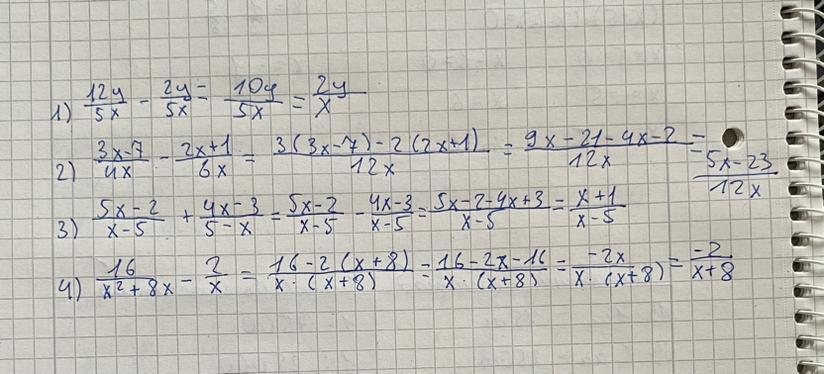 1) 12y/5x - 2y/5x = 10y/5x = 2y/x
2) 3x-7/4x - 2x+1/6x = 3(3x-7)-2(2x+1)/12x = 9x-21-4x-2/12x = 5x-23/12x
3) 5x-2/x-5 + 4x-3/5-x = 5x-2/x-5 - 4x-3/x-5 = 5x-2-4x+3/x-5 = x+1/x-5
4) 16/x²+8x - 2/x = 16-2(x+8)/x·(x+8) = 16-2x-16/x·(x+8) = -2x/x·(x+8) = -2/x+8